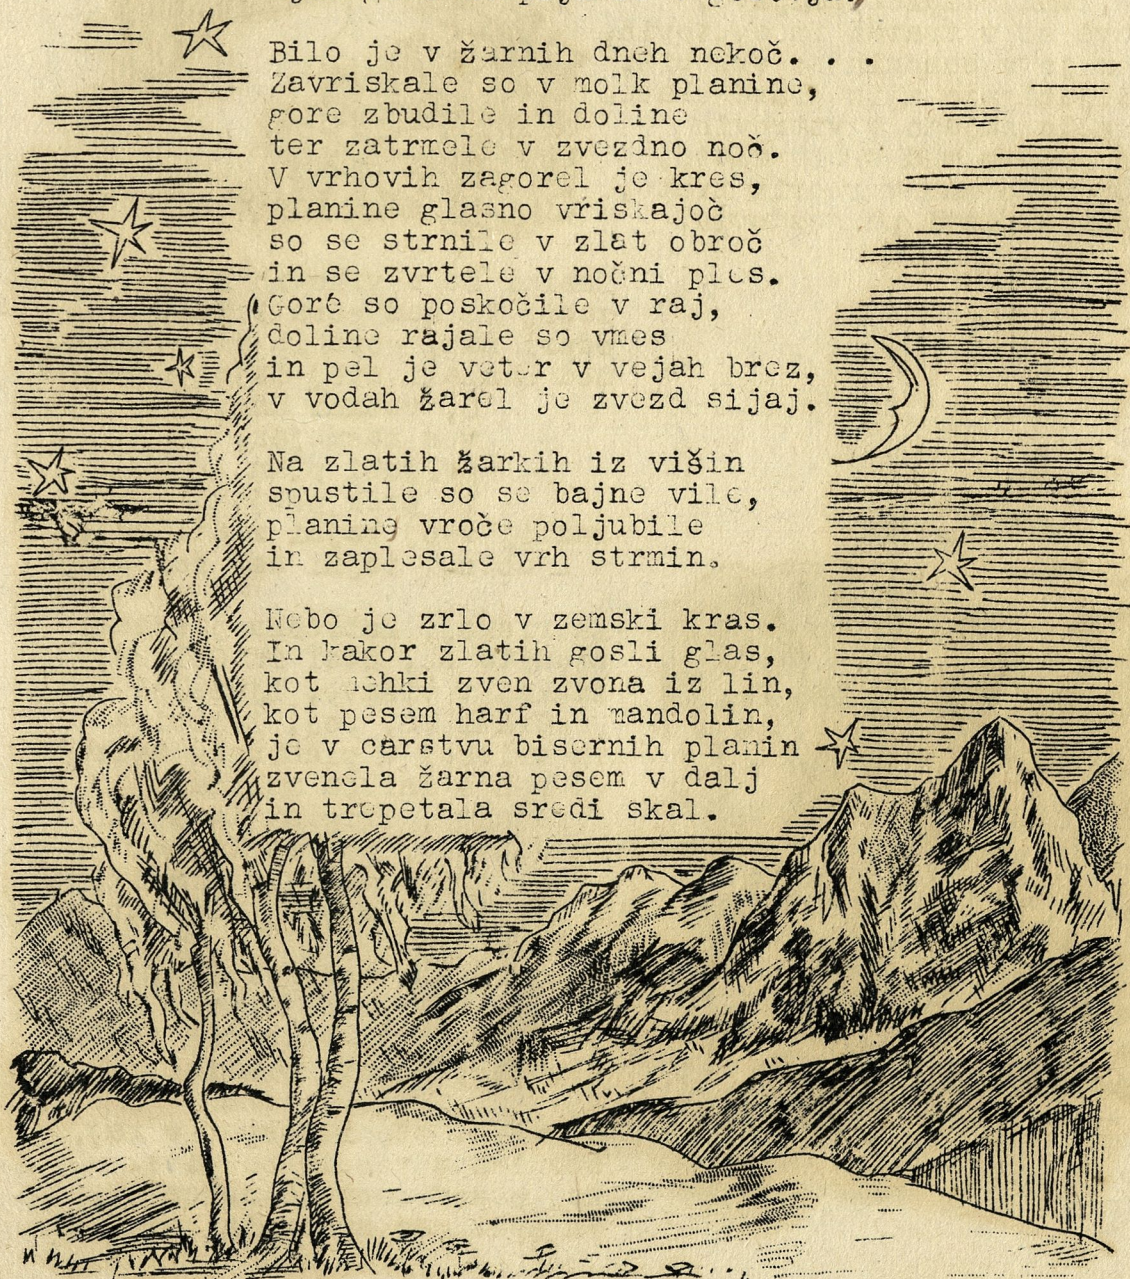 Bilo je v žarnih dneh nekoč. . .
Zavriskale so v molk planine,
gore zbudile in doline
ter zatrmele v zvezdno noč.
V vrhovih zagorel je kres,
planine glasno vriskajoč
so se strnile v zlat obroč
in se zvrtele v nočni ples.
Gore so poskočile v raj,
doline rajale so vmes
in pel je veter v vejah brez,
v vodah žarel je zvezd sijaj.
Na zlatih žarkih iz višin
spustile so se bajne vile,
planine vroče poljubile
in zaplesale vrh strmin.
Nebo je zrlo v zemski kras.
In kakor zlatih gosli glas,
kot mehki zven zvona iz lin,
kot pesem harf in mandolin,
je v carstvu bisernih planin
zvenela žarna pesem v dalj
in trepetala sredi skal.